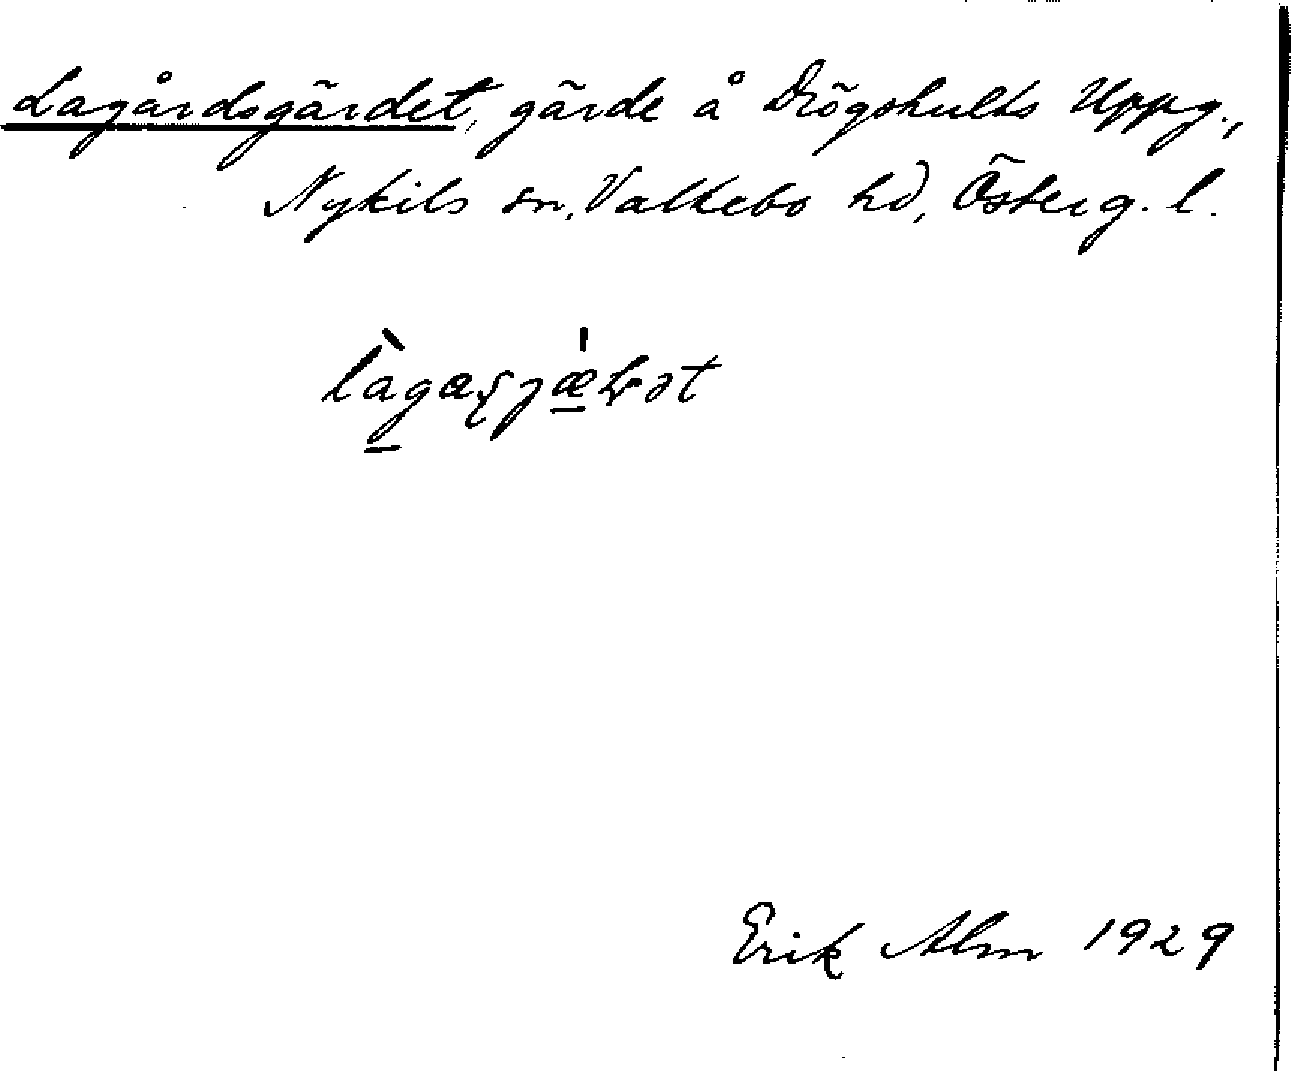 Lagårdsgärdet, gärde å Drögshults Uppg.,
Nykils sn, Valkebo hd, Österg. l.
Erik Alm 1929